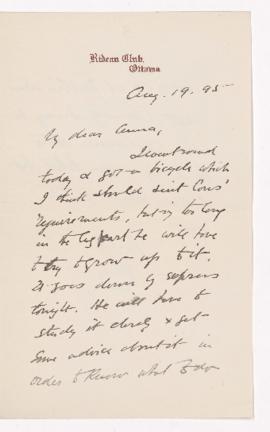 Rideau Club,
Ottawa
Aug. 19. 95
My dear Anna,
I went round
today & got a bicycle which
I think should suit Cons'
requirements, but is too long
in the leg part he will have
to try to grow up to it.
It goes down by express
tonight. He will have to
study it closely & get
some advice about it in
order to know what to do